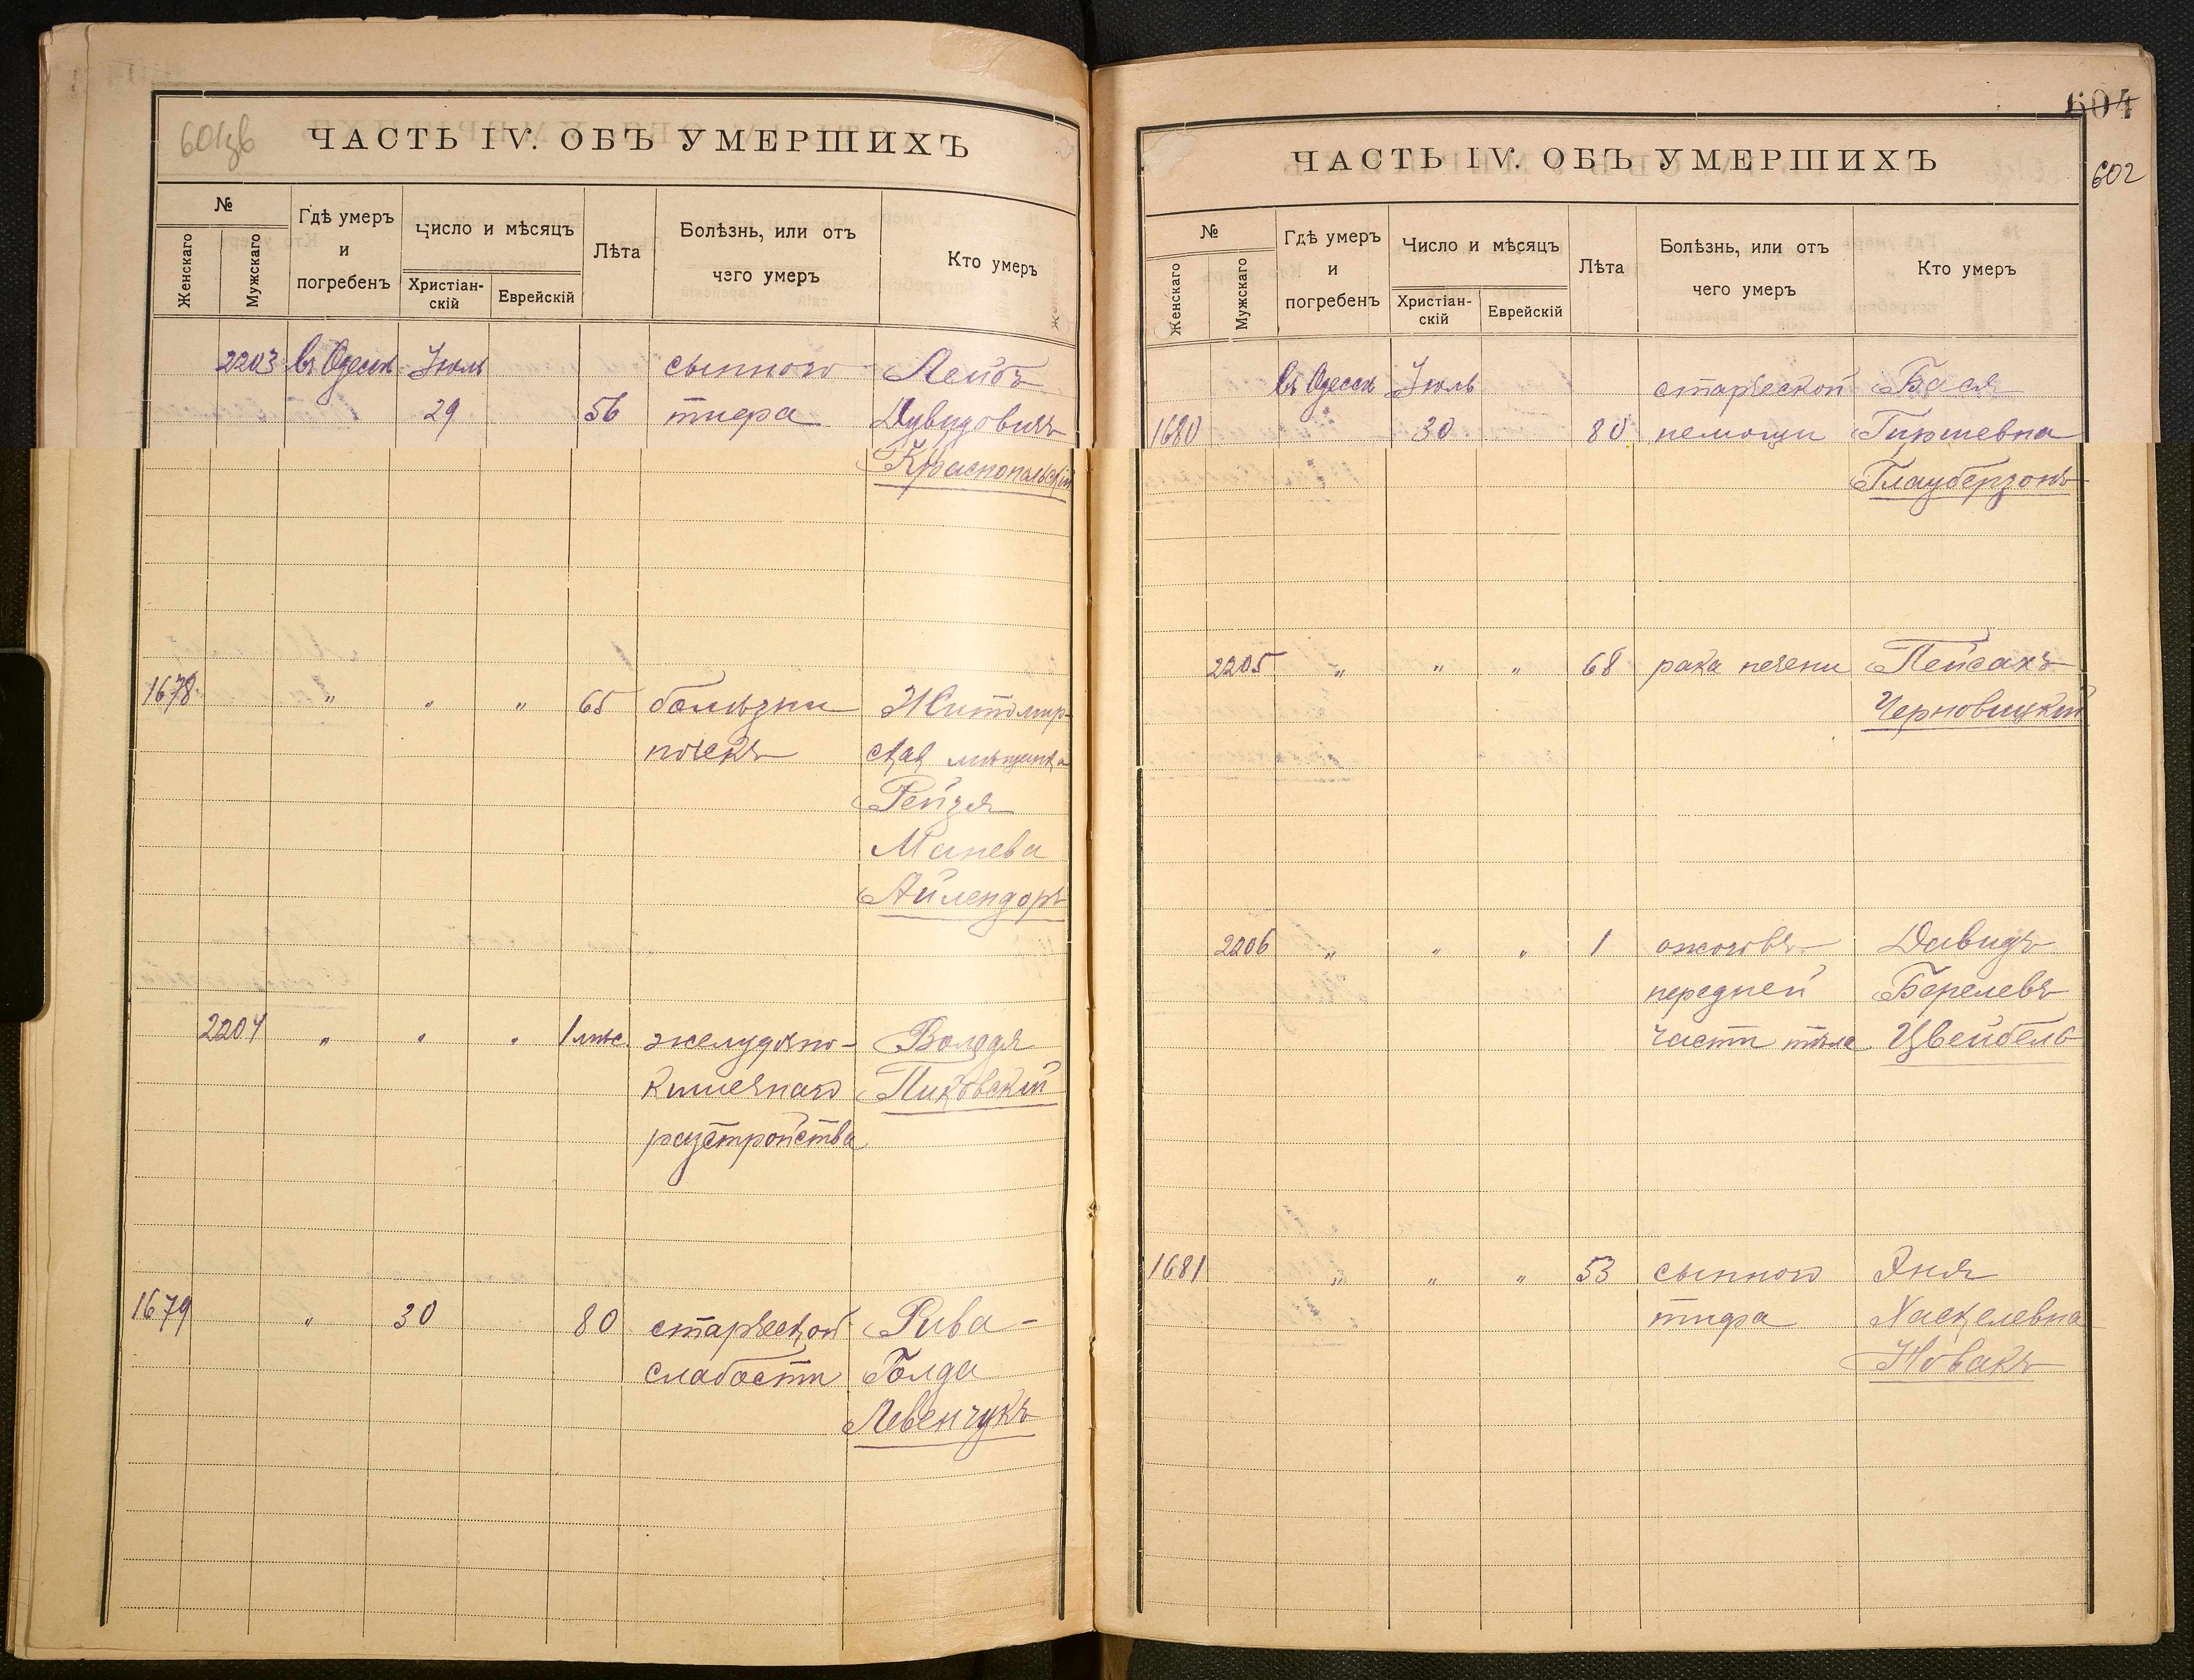 601зв
ЧАСТЬ IV. ОБЪ УМЕРШИХЪ
№
Женскаго
Мужскаго
Гдѣ умеръ
и
погребенъ
Число и мѣсяцъ
Христіан-
скій
Еврейскій
Лѣта
Болѣзнь, или отъ
чего умеръ
Кто умеръ
2203 въ Одессѣ Іюль сыпного Лейбъ
29 56 тифа Дувидовичъ
Краснопольскій
1678 " " " 65 болѣзни Житомир-
почекъ ская мѣщанка
Рейзя
Манева
Айлендоръ
2204 " " " 1 мѣс. желудочно- Володя
кишечнаго Пиковскій
разстройства
1679 " 30 80 старческой Рива-
слабости Голда
Левенчукъ
604
602
ЧАСТЬ IV. ОБЪ УМЕРШИХЪ
№
Женскаго
Мужскаго
Гдѣ умеръ
и
погребенъ
Число и мѣсяцъ
Христіан-
скій
Еврейскій
Лѣта
Болѣзнь, или отъ
чего умеръ
Кто умеръ
въ Одессѣ Іюль старческой Бася
1680 30 80 немощи Гиршевна
Глауберзонъ
2205 " " " 68 рака печени Пейсахъ
Черновицкій
2206 " " " 1 ожоговъ Давидъ
передней Берелевъ
части тѣла Цвейбель
1681 " " " 53 сыпного Эня
тифа Хаскелевна
Новакъ